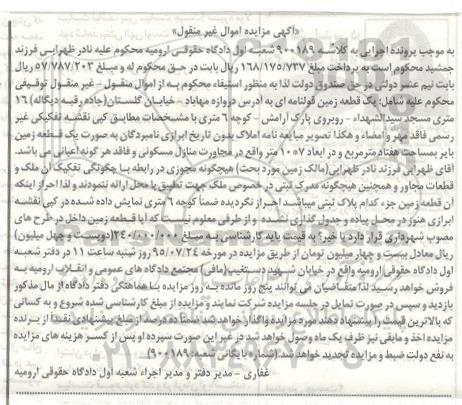 «آگهی مزایده اموال غیر منقول»
به موجب پرونده اجرایی به کلاسه ۹۰۰۱۸۹ شعبه اول دادگاه حقوقی ارومیه محکوم علیه نادر طهرابی فرزند
جمشید محکوم است به پرداخت مبلغ ۱۶۸/۱۷۵/۷۳۷ ریال بابت در حق محکوم له و مبلغ ۵۷/۷۸۷/۲۰۳ ریال
بابت نیم عشر دولتی در حق صندوق دولت لذا به منظور استیفاء محکوم به از اموال منقول - غیر منقول توقیفی
محکوم علیه شامل: یک قطعه زمین قولنامه ای به آدرس دروازه مهاباد - خیابان گلستان (جاده رقبه دیگاله) ۱۶
متری مسجد سید الشهداء - روبروی پارک آرامش - کوچه ۶ متری با مشخصات مطابق کپی نقشه تفکیکی غیر
رسمی فاقد مهر و امضاء و هکذا تصویر مبایعه نامه املاک بدون تاریخ ابرازی نامبردگان به صورت یک قطعه زمین
بایر بمساحت هفتاد مترمربع و در ابعاد ۷*۱۰ متر واقع در مجاورت منازل مسکونی و فاقد هر گونه اعیانی می باشد.
آقای طهرابی فرزند نادر ظهرابی (مالک زمین مورد بحث) هیچگونه مجوزی در رابطه با چگونگی تفکیک آن ملک و
قطعات مجاور و همچنین هیچگونه مدرک ثبتی در خصوص ملک جهت تطبیق با محل ارائه ننمودند و لذا احراز اینکه
آن قطعه زمین جزء کدام پلاک ثبتی میباشد احراز نگردیده ضمناً کوچه ۶ متری نمایش داده شده در کپی نقشه
ابرازی هنوز در محل پیاده و جدول گذاری نشده و از طرفی معلوم نیست که آیا قطعه زمین داخل در طرح های
مصوب شهرداری قرار دارد یا خیر؟ به قیمت پایه کارشناسی به مبلغ ۲۴۰/۰۰۰/۰۰۰ (دویست و چهل میلیون)
ریال معادل بیست و چهار میلیون تومان از طریق مزایده در مورخه ۹۵/۰۷/۲۴ روز شنبه ساعت ۱۱ در دفتر شعبه
اول دادگاه حقوقی ارومیه واقع در خیابان شهید دستغیب (مافی) مجتمع دادگاه های عمومی و انقلاب ارومیه به
فروش خواهد رسید لذا متقاضیان می توانند پنج روز مانده به روز مزایده با هماهنگی دفتر دادگاه از مال مذکور
بازدید و سپس در صورت تمایل در جلسه مزایده شرکت نمایند و مزایده از مبلغ کارشناسی شده شروع و به کسانی
که بالاترین قیمت را پیشنهاد دهند مورد مزایده واگذار خواهد شد ضمناً ده درصد از مبلغ پیشنهادی نقداً از برنده
مزایده اخذ و مابقی نیز ظرف یک ماه وصول خواهد شد در غیر این صورت سپرده او پس از کسر هزینه های مزایده
به نفع دولت ضبط و مزایده تجدید خواهد شد. (شماره بایگانی شعبه: ۹۰۰۱۸۹)
غفاری - مدیر دفتر و مدیر اجراء شعبه اول دادگاه حقوقی ارومیه